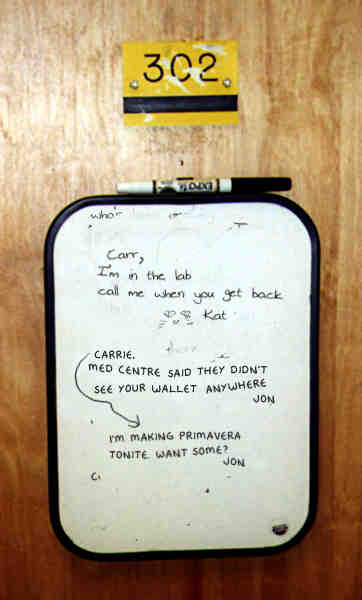 302
EXPO
who's
Carr,
I'm in the lab
call me when you get back
Kat
CARRIE.
MED CENTRE SAID THEY DIDN'T
SEE YOUR WALLET ANYWHERE
JON
I'M MAKING PRIMAVERA
TONITE. WANT SOME?
JON